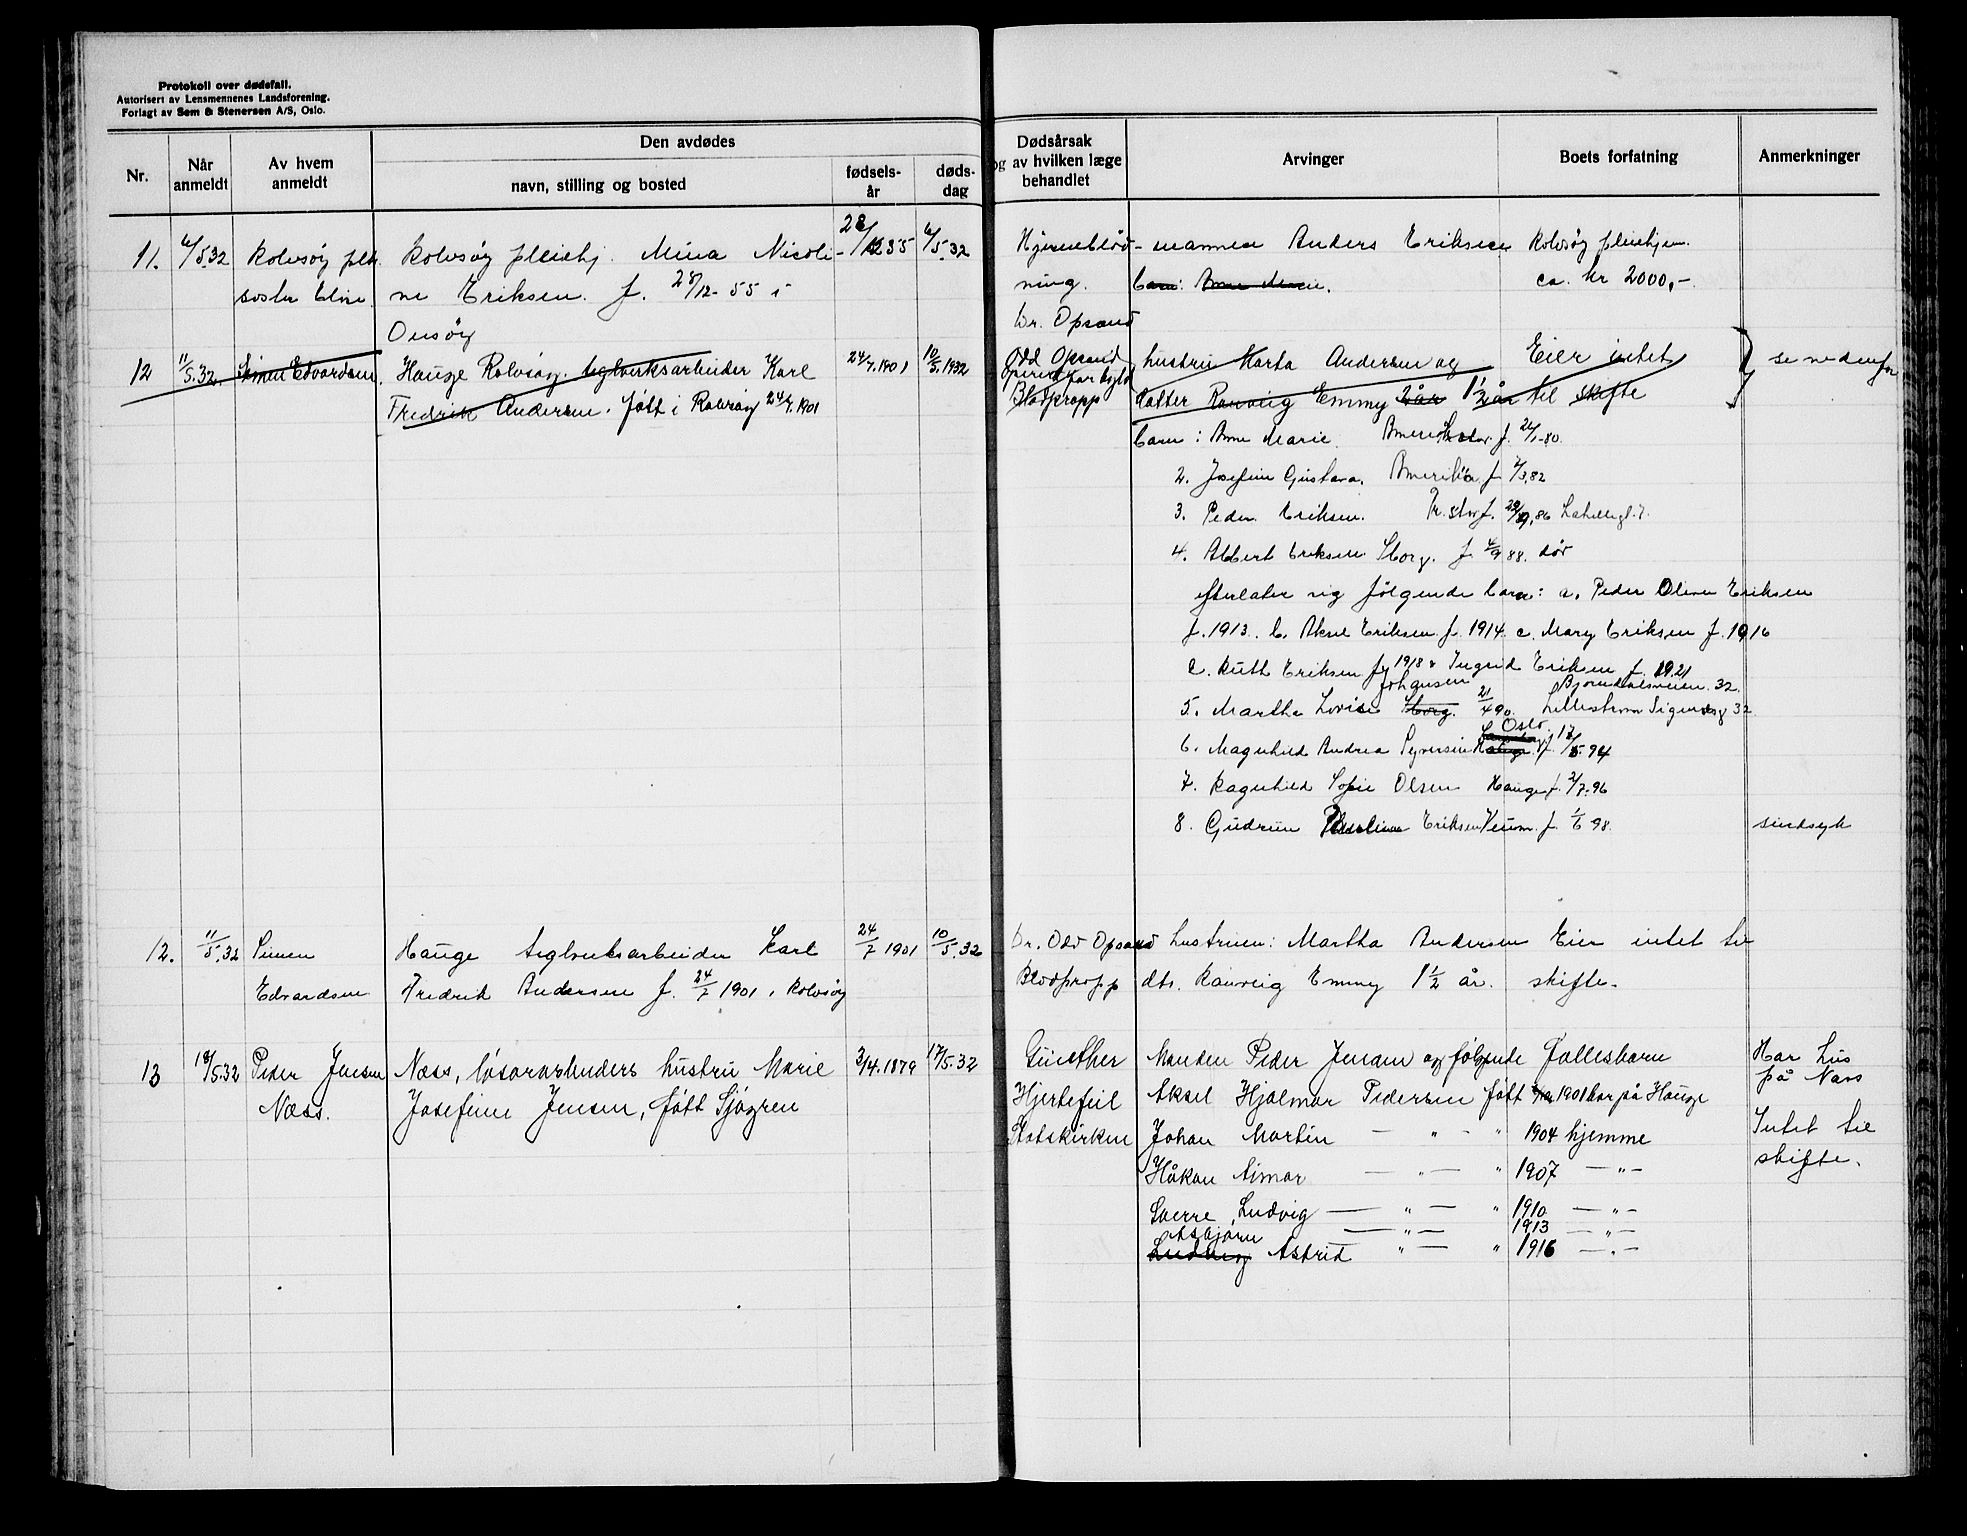 Protokoll over dødsfall.
Autorisert av Lensmennenes Landsforening.
Forlagt av Sem & Stenersen A/S, Oslo.
Nr.
Når anmeldt
Av hvem anmeldt
Den avdødes
navn, stilling og bosted
fødsels-år
døds-dag
Dødsårsak
og av hvilken læge
behandlet
Arvinger
Boets forfatning
Anmerkninger
11. 6/5.32 Rolvsøy
søster Elvine
Rolvsøy pleiehj. Mina Nicoli-
ne Eriksen. f. 28/12-55 i
Onsøy
28/12 55 6/5.32
Hjerneblød-
ning.
Dr. Opsand
mannen Anders Eriksen Rolvsøy pleiehjem.
barn: Anne Marie. ca. kr 2000,-
12 11/5.32. Simen Edvardsen. Hauge Rolvsøy. teglverksarbeider Karl 24/7.1901 10/5.1932
Fredrik Andersen. født i Rolvsøy 24/7.1901
Odd Opsand
Operert for
Blodpropp
hustru Marta Andersen og Eier intet se nedenfor
datter Ranveig Emmy 2 år 1½ år til skifte
barn: Anne Marie. Amerika f. -80.
2. Josefine Gustava. Amerika f. 82
3. Peder Eriksen. f. 86
4. Albert Eriksen Borg. f. 88. død
efterlater sig følgende barn: a. Peder Oliver Eriksen
f. 1913. b. Aksel Eriksen f. 1914. c. Mary Eriksen f. 1916
c. Ruth Eriksen f. 1918 & Ingrid Eriksen f. 1921
Johansen 32.
5. Martha Lovise Borg. 21/4 90. Lillestrøm 32
Oslo
6. Magnhild Andrea f. 94
7. Ragnhild Sofie Olsen Hauge f. 2/7-96
8. Gudrun Eriksen Veum. f. 1/6 98. sindsyk
12. 11/5.32 Simen
Edvardsen
Hauge teglverksarbeider Karl
Fredrik Andersen f. 24/7 1901 i Rolvsøy
24/7 1901 10/5.32
Dr. Odd Opsand hustruen: Martha Andersen Eier intet til
Blodpropp dtr. Ranveig Emmy 1½ år. skifte.
13 18/5.32 Peder Jensen
Næss.
Næss, løsarbeiders hustru Marie
Josefine Jensen, født Sjøgren
3/4.1879 17/5.32
Günther Manden Peder Jensen og følgende Fellesbarn Har hus
på Næss
Hjertefeil Aksel Hjalmar Pedersen født 1901 bor på Hauge
Statskirken Johan Martin — " — " 1904 hjemme Intet til
skifte.
Håkon Aimar — " — " 1907 — " —
Sverre Ludvig — " — " 1910 — " —
Asbjørn — " — 1913 — " —
Ludvig Astrid " — " 1916 — " —